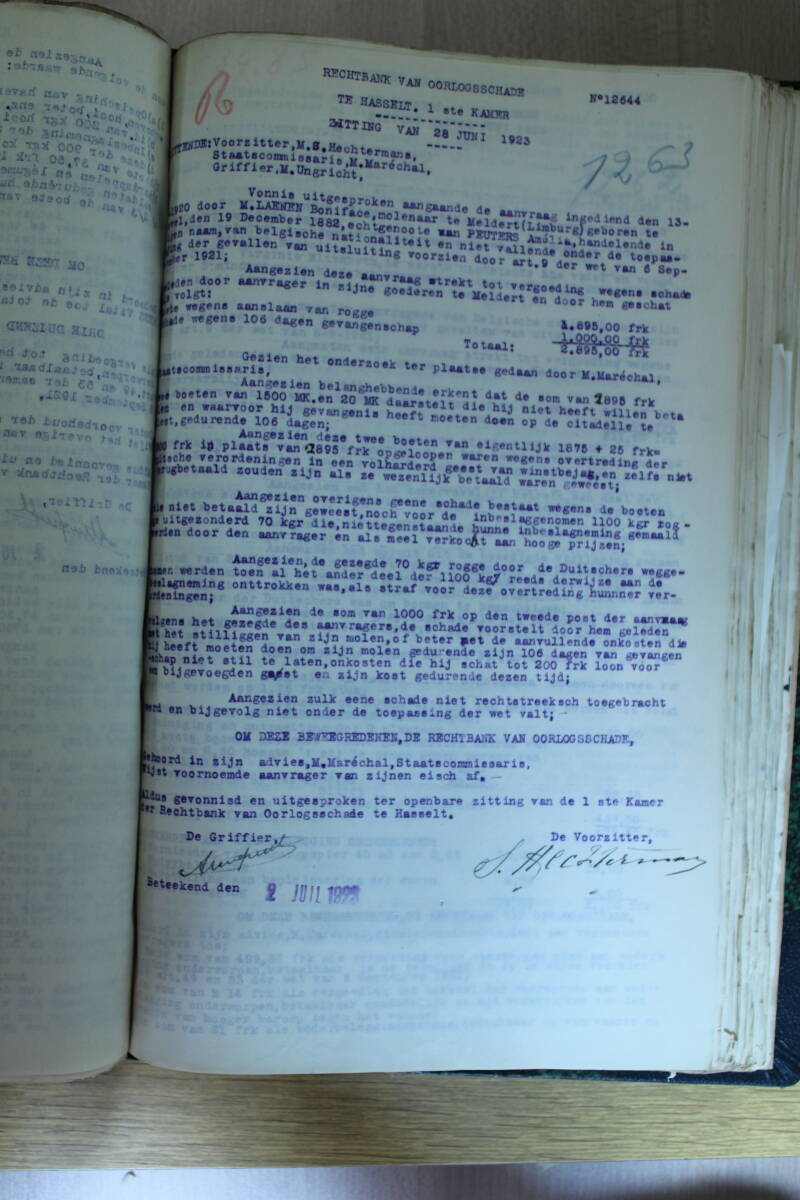 RECHTBANK VAN OORLOGSSCHADE
N°12644
TE HASSELT. 1 ste KAMER
ZITTING VAN 28 JUNI 1923
1263
TTENDE:Voorzitter,M.S.Hechtermans,
Staatscommissaris,M.Maréchal,
Griffier,M.Ungricht,
Vonnis uitgesproken aangaande de aanvraag ingediend den 13-
1920 door M.LAENEN Boniface,molenaar te Meldert(Limburg)geboren te
den 19 December 1882,echtgenoote van PEUTERS Amélia,handelende in
en naam,van belgische nationaliteit en niet vallende onder de toepas-
ng der gevallen van uitsluiting voorzien door art.9 der wet van 6 Sep-
ber 1921;
Aangezien deze aanvraag strekt tot vergoeding wegens schade
eden door aanvrager in zijne goederen te Meldert en door hem geschat
s volgt:
ete wegens aanslaan van rogge 1.895,00 frk
ade wegens 106 dagen gevangenschap 1.000,00 frk
Totaal: 2.895,00 frk
Gezien het onderzoek ter plaatse gedaan door M.Maréchal,
aatscommissaris,
Aangezien belanghebbende erkent dat de som van 1895 frk
ee boeten van 1500 MK.en 20 MK daarstelt die hij niet heeft willen beta
en en waarvoor hij gevangenis heeft moeten doen op de citadelle te
est,gedurende 106 dagen;
Aangezien deze twee boeten van eigentlijk 1875 + 25 frk=
00 frk in plaats van 1895 frk opgeloopen waren wegens overtreding der
itsche verordeningen in een volharderd geest van winstbejag,en zelfs niet
rugbetaald zouden zijn als ze wezenlijk betaald waren geweest;
Aangezien overigens geene schade bestaat wegens de boeten
ie niet betaald zijn geweest,noch voor de inbeslaggenomen 1100 kgr rog-
e uitgezonderd 70 kgr die,niettegenstaande hunne inbeslagneming gemaald
erden door den aanvrager en als meel verkocht aan hooge prijzen;
Aangezien,de gezegde 70 kgr rogge door de Duitschers wegge-
omen werden toen al het ander deel der 1100 kgr reeds derwijze aan de
beslagneming onttrokken was,als straf voor deze overtreding hunnner ver-
ordeningen;
Aangezien de som van 1000 frk op den tweede post der aanvraag
olgens het gezegde des aanvragers,de schade voorstelt door hem geleden
et het stilliggen van zijn molen,of beter met de aanvullende onkosten die
hij heeft moeten doen om zijn molen gedurende zijn 106 dagen van gevangen
schap niet stil te laten,onkosten die hij schat tot 200 frk loon voor
en bijgevoegden gast en zijn kost gedurende dezen tijd;
Aangezien zulk eene schade niet rechtstreeksch toegebracht
erd en bijgevolg niet onder de toepassing der wet valt;-
OM DEZE BEWEEGREDENEN,DE RECHTBANK VAN OORLOGSSCHADE,
Gehoord in zijn advies,M.Maréchal,Staatscommissaris,
Wijst voornoemde aanvrager van zijnen eisch af.-
Aldus gevonnisd en uitgesproken ter openbare zitting van de 1 ste Kamer
der Rechtbank van Oorlogsschade te Hasselt.
De Griffier, De Voorzitter,
S. Hechtermans
Beteekend den 2 JUIL 1923